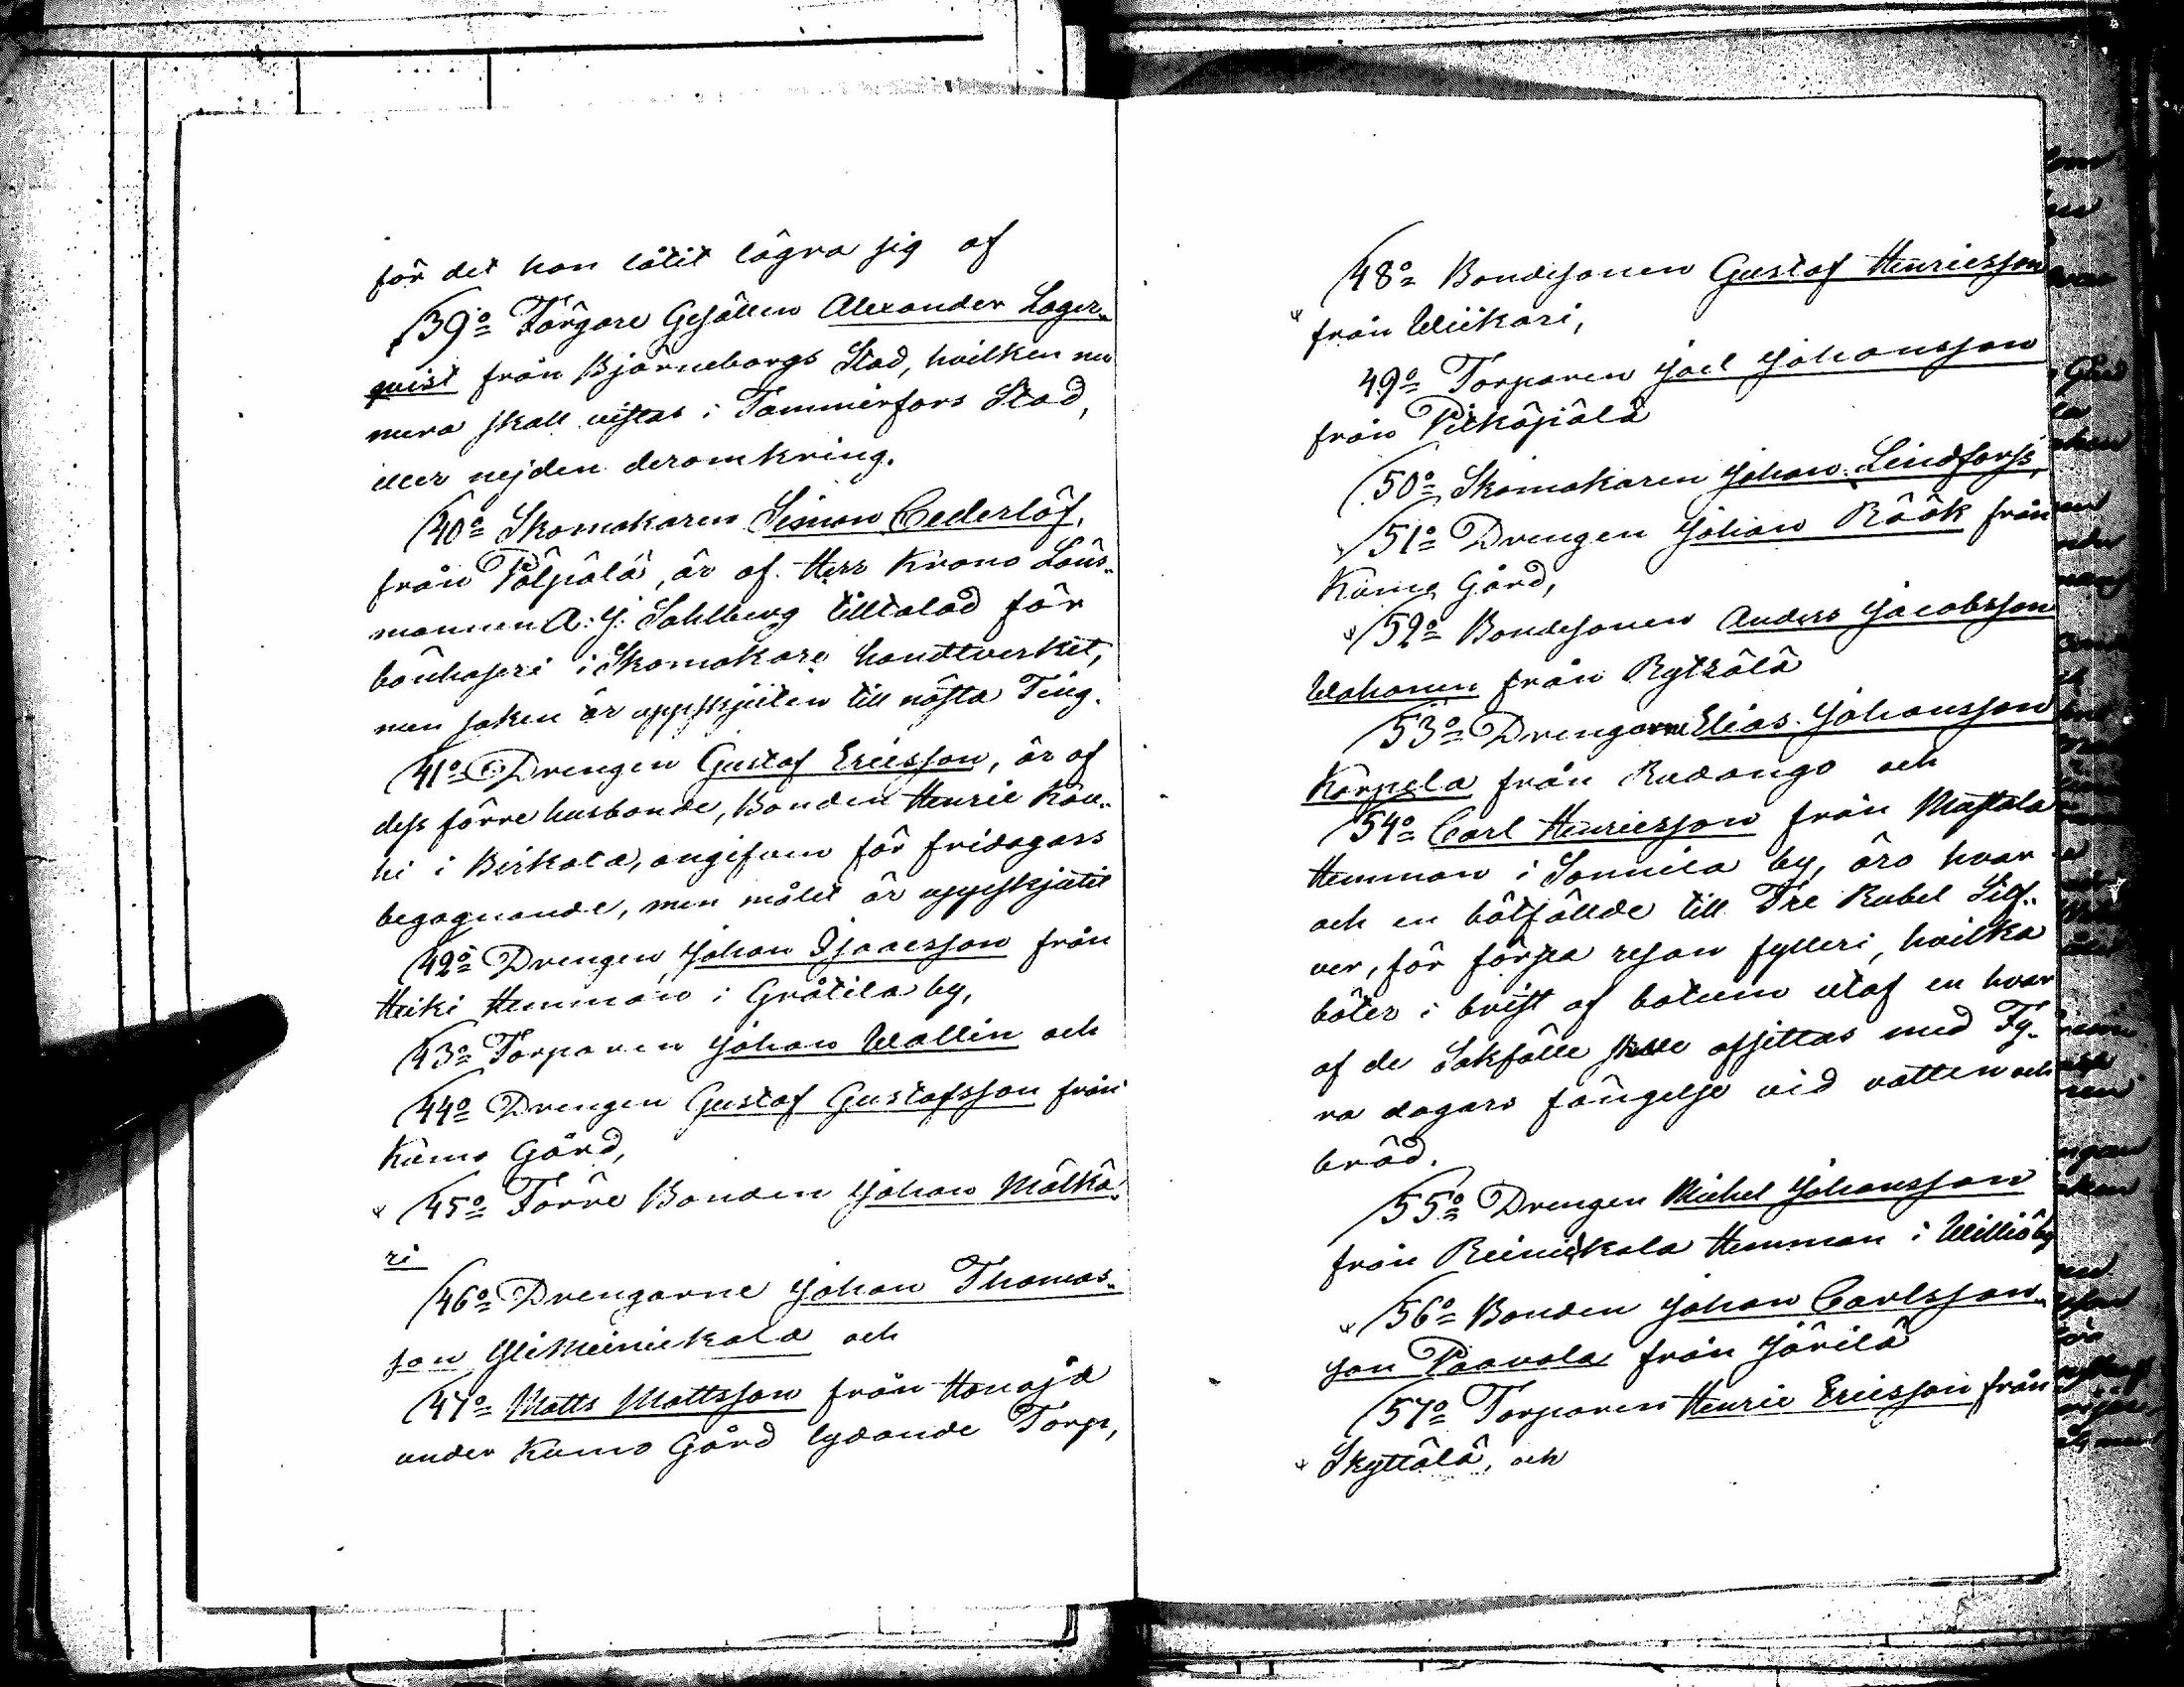 för det han låtit lägra sig af
39o Färgare Gesällen Alexander Lager-
qvist från Björneborgs Stad, hvilken nu
mera skall vistas i Tammerfors Stad,
eller nejden deromkring.
40o Skomakaren Simon Cederlöf,
från Pälpälä, är af Herr Krono Läns-
mannen A. J. Sahlberg tilltalad för
bönhaseri i Skomakare handtverket,
men saken är uppskjuten till nästa Ting.
41o Drengen Gustaf Ericsson, är af
dess förre husbonde, Bonden Henric Kau-
hi i Birkala, angifven för fridagars
begagnande, men målet är uppskjutit
42o Drengen Johan Isaacsson från
Heiki Hemman i Gråtila by,
43o Torparen Johan Wallin och
44o Drengen Gustaf Gustafsson från
Kumo Gård,
45o Förre Bonden Johan Mälkä-
ri
46o Drengarne Johan Thomas-
son Yli Meinickala och
47o Matts Mattsson från Hanaja
under Kumo Gård lydande Torp,
48o Bondesonen Gustaf Henricsson
från Wiikari,
49o Torparen Joel Johansson
från Pitkäpiälä
50o Skomakaren Johan Lindforss,
51o Drengen Johan Röök från
Kumo Gård,
52o Bondesonen Anders Jacobsson
Wahanen från Rytsälä
53o Drengarne Elias Johansson
Kärpelä från Rudango och
54o Carl Henricsson från Mustala
Hemman i Sonnila by, äro hvar
och en bötfällde till Tre Rubel Silf-
ver, för första resan fylleri, hvilka
böter i brist af botum utaf en hvar
af de Sakfälle skola afsittas med Fy-
ra dagars fängelse vid vatten och
bröd.
55o Drengen Michel Johansson
från Reinickala Hemman i Williö by
56o Bonden Johan Carlsson-
son Paavola från Järilä
57o Torparen Henric Ericsson från
Skyttälä, och